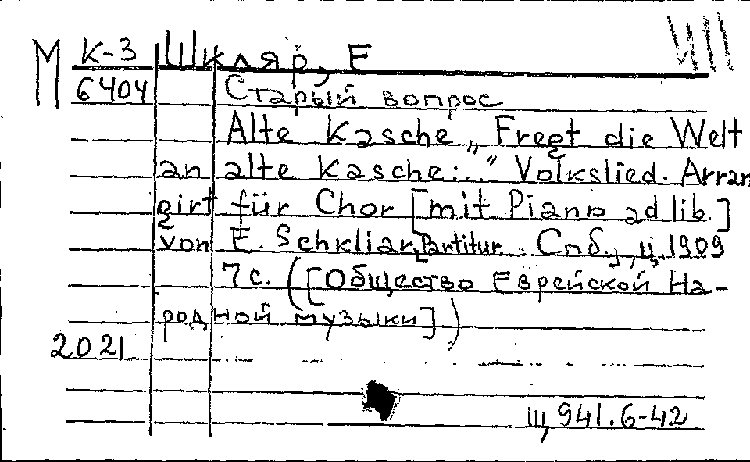 М К-3 Шкляр, Е
6404 Старый вопрос
Alte Kasche „Fregt die Welt
an alte Kasche:..." Volkslied. Arran
girt für Chor [mit Piano ad lib.]
von E. Schkliar, Partitur. Спб., ц. 1909
7 с. ([Общество Еврейской На-
родной музыки])
2021
Щ 941.6-42